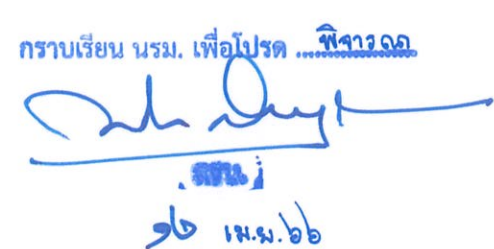 กราบเรียน นรม. เพื่อโปรด ...พิจารณา
๑๒ เม.ย. ๖๖